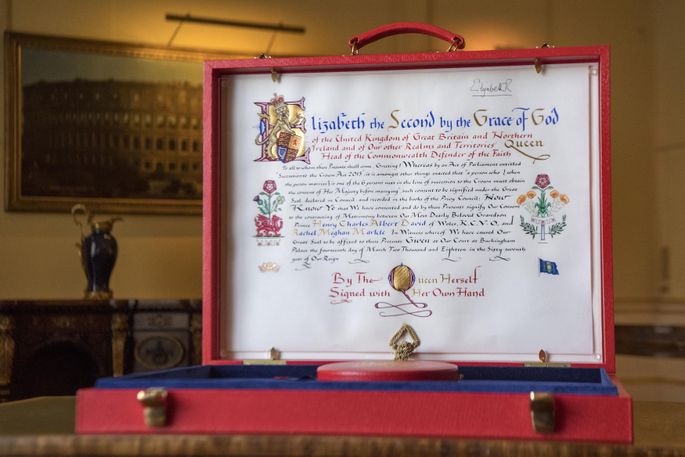 Elizabeth R
Elizabeth the Second by the Grace of God
of the United Kingdom of Great Britain and Northern
Ireland and of Our other Realms and Territories Queen
Head of the Commonwealth Defender of the Faith
To all to whom these Presents shall come, Greeting! Whereas by an Act of Parliament entitled
Succession to the Crown Act 2013, it is amongst other things enacted that "a person who (when
the person marries) is one of the 6 persons next in the line of succession to the Crown must obtain
the consent of Her Majesty before marrying" such consent to be signified under the Great
Seal, declared in Council, and recorded in the books of the Privy Council; Now
Know Ye that We have consented and do by these Presents signify Our Consent
to the contracting of Matrimony between Our Most Dearly Beloved Grandson
Prince Henry Charles Albert David of Wales, K.C.V.O., and
Rachel Meghan Markle. In Witness whereof We have caused Our
Great Seal to be affixed to these Presents. Given at Our Court at Buckingham
Palace the fourteenth day of March Two Thousand and Eighteen in the Sixty-seventh
year of Our Reign.
By The Queen Herself
Signed with Her Own Hand